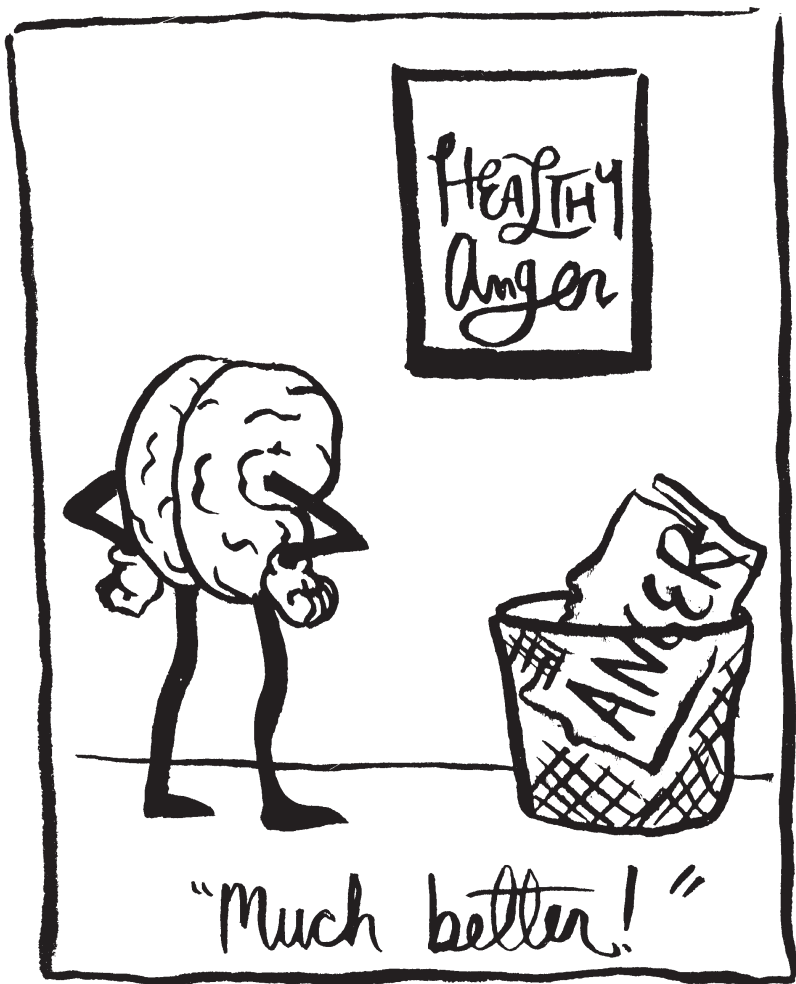 HEALTHY
Anger
ANGER
"Much better!"